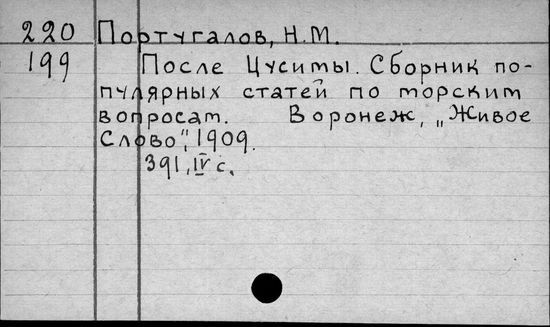 220 Португалов, Н.М.
199 После Цусимы. Сборник по-
пулярных статей по морским
вопросам. Воронеж, „Живое
Слово", 1909.
391, IV с.